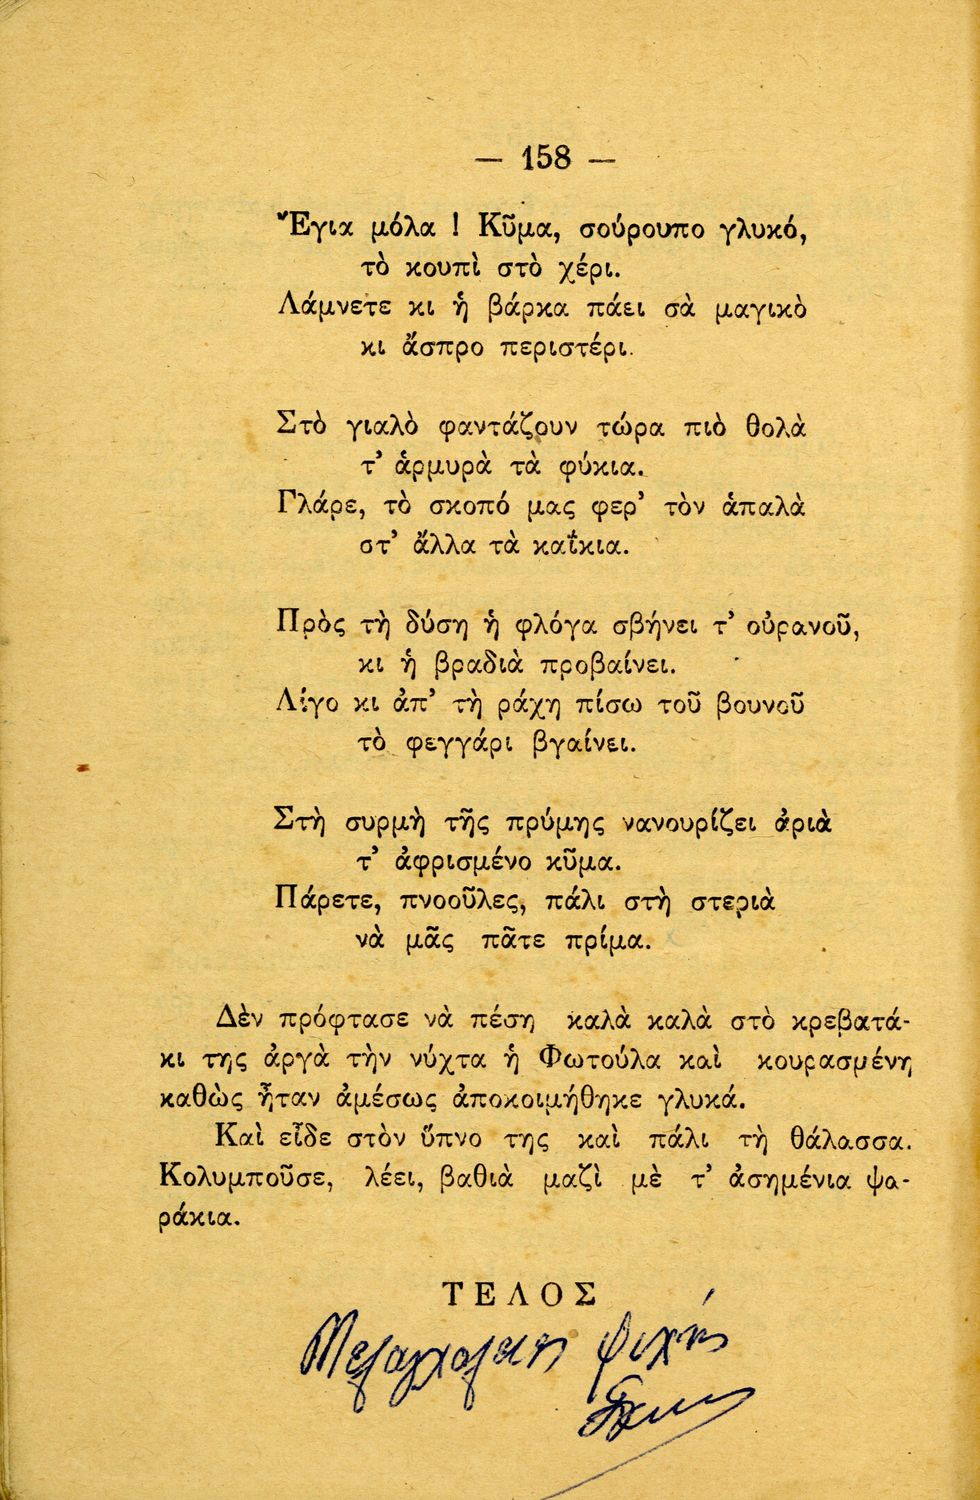 — 158 —
Ἔγια μόλα ! Κῦμα, σούρουπο γλυκό,
τὸ κουπὶ στὸ χέρι.
Λάμνετε κι ἡ βάρκα πάει σὰ μαγικὸ
κι ἄσπρο περιστέρι.
Στὸ γιαλὸ φαντάζουν τώρα πιὸ θολὰ
τ’ ἁρμυρὰ τὰ φύκια.
Γλάρε, τὸ σκοπό μας φερ’ τὸν ἁπαλὰ
στ’ ἄλλα τὰ καΐκια.
Πρὸς τὴ δύση ἡ φλόγα σβήνει τ’ οὐρανοῦ,
κι ἡ βραδιὰ προβαίνει.
Λίγο κι ἀπ’ τὴ ράχη πίσω τοῦ βουνοῦ
τὸ φεγγάρι βγαίνει.
Στὴ συρμὴ τῆς πρύμης νανουρίζει ἀριὰ
τ’ ἀφρισμένο κῦμα.
Πάρετε, πνοοῦλες, πάλι στὴ στεριὰ
νὰ μᾶς πᾶτε πρίμα.
Δὲν πρόφτασε νὰ πέση καλὰ καλὰ στὸ κρεβατά-
κι της ἀργὰ τὴν νύχτα ἡ Φωτούλα καὶ κουρασμένη
καθὼς ἦταν ἀμέσως ἀποκοιμήθηκε γλυκά.
Καὶ εἶδε στὸν ὕπνο της καὶ πάλι τὴ θάλασσα.
Κολυμποῦσε, λέει, βαθιὰ μαζὶ μὲ τ’ ἀσημένια ψα-
ράκια.
ΤΕΛΟΣ